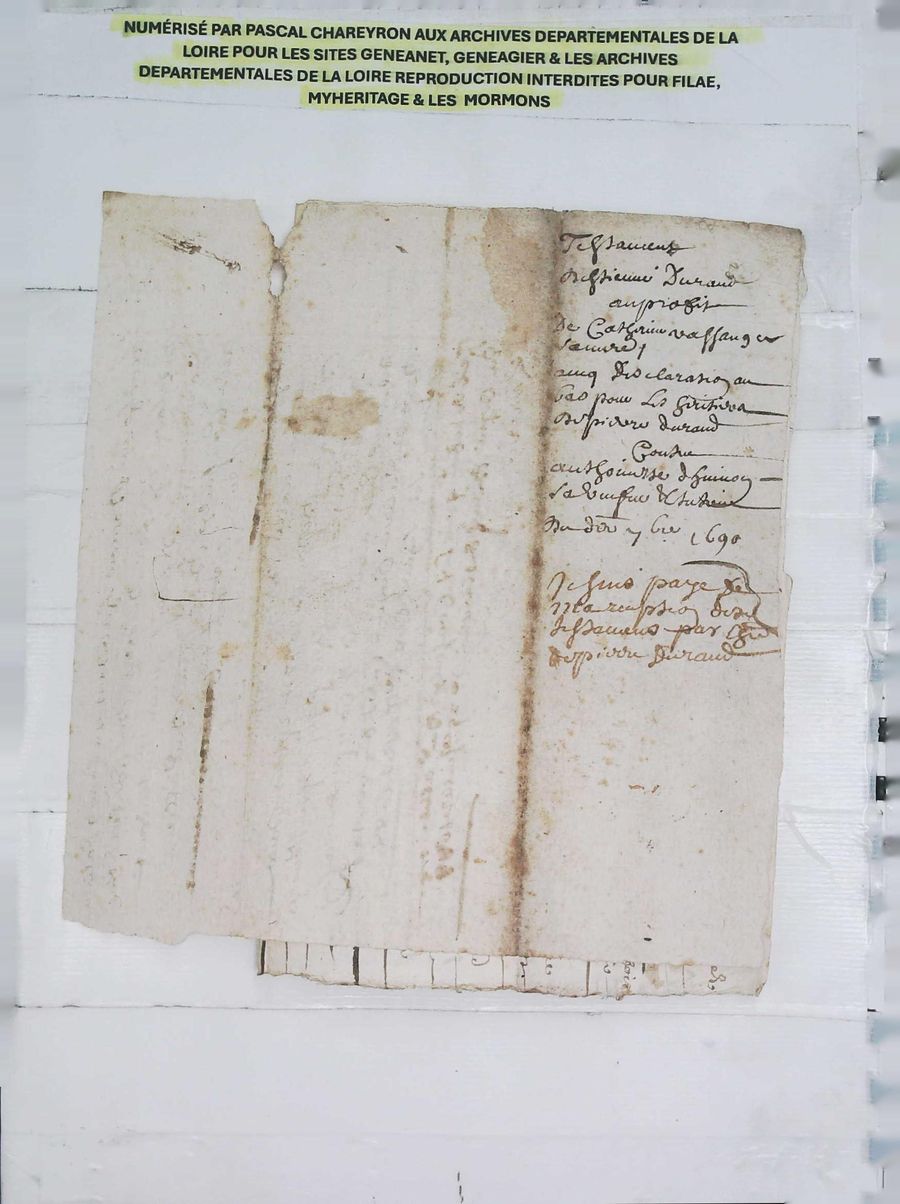 NUMÉRISÉ PAR PASCAL CHAREYRON AUX ARCHIVES DEPARTEMENTALES DE LA
LOIRE POUR LES SITES GENEANET, GENEAGIER & LES ARCHIVES
DEPARTEMENTALES DE LA LOIRE REPRODUCTION INTERDITES POUR FILAE,
MYHERITAGE & LES MORMONS
Testament
destienne Durand
au profit
De Catherine
sa mere
avecq declaration au
bas pour les heritiers
de pierre durand
Contre
anthoinette
sa veufve
Du 7bre 1690
Je suis paye de
ma reception dud
testament par
de pierre Durand